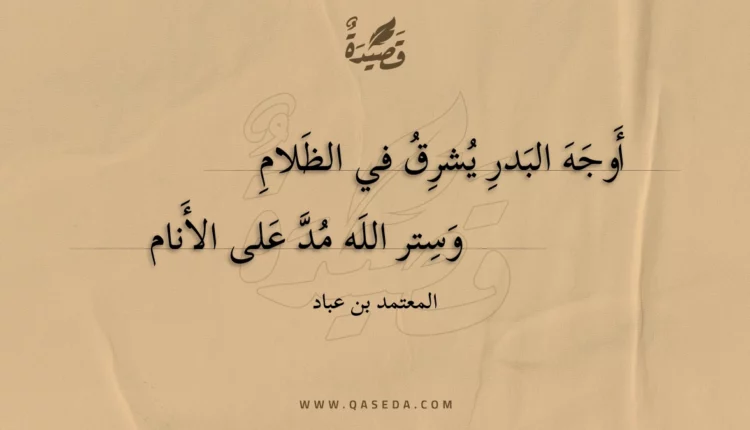 قَصِيْدَةٌ
أَوَجَهَ البَدرِ يُشرِقُ في الظَلامِ
وَسِتر اللَه مُدَّ عَلى الأَنام
المعتمد بن عباد
WWW.QASEDA.COM